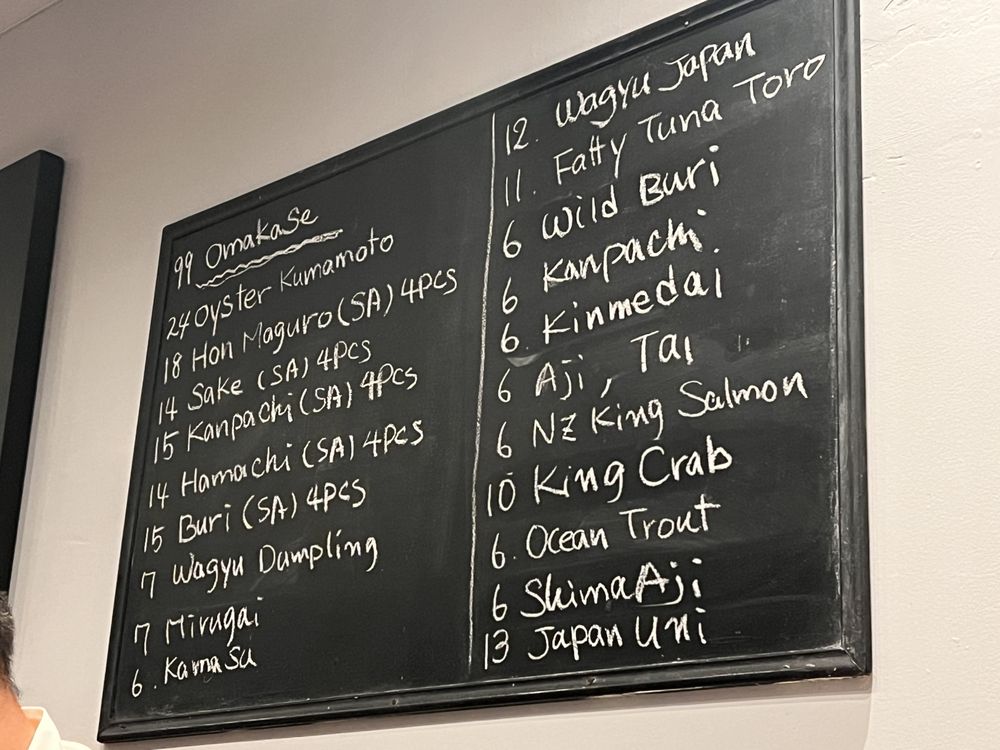 99 Omakase
24 Oyster Kumamoto
18 Hon Maguro (SA) 4pcs
14 Sake (SA) 4Pcs
15 Kanpachi (SA) 4Pcs
14 Hamachi (SA) 4Pcs
15 Buri (SA) 4Pcs
7 Wagyu Dumpling
7 Mirugai
6. KamaSu
12. Wagyu Japan
11. Fatty Tuna Toro
6 Wild Buri
6 Kanpachi.
6. Kinmedai
6 Aji, Tai
6 NZ King Salmon
10 King Crab
6. Ocean Trout
6 Shima Aji
13 Japan Uni